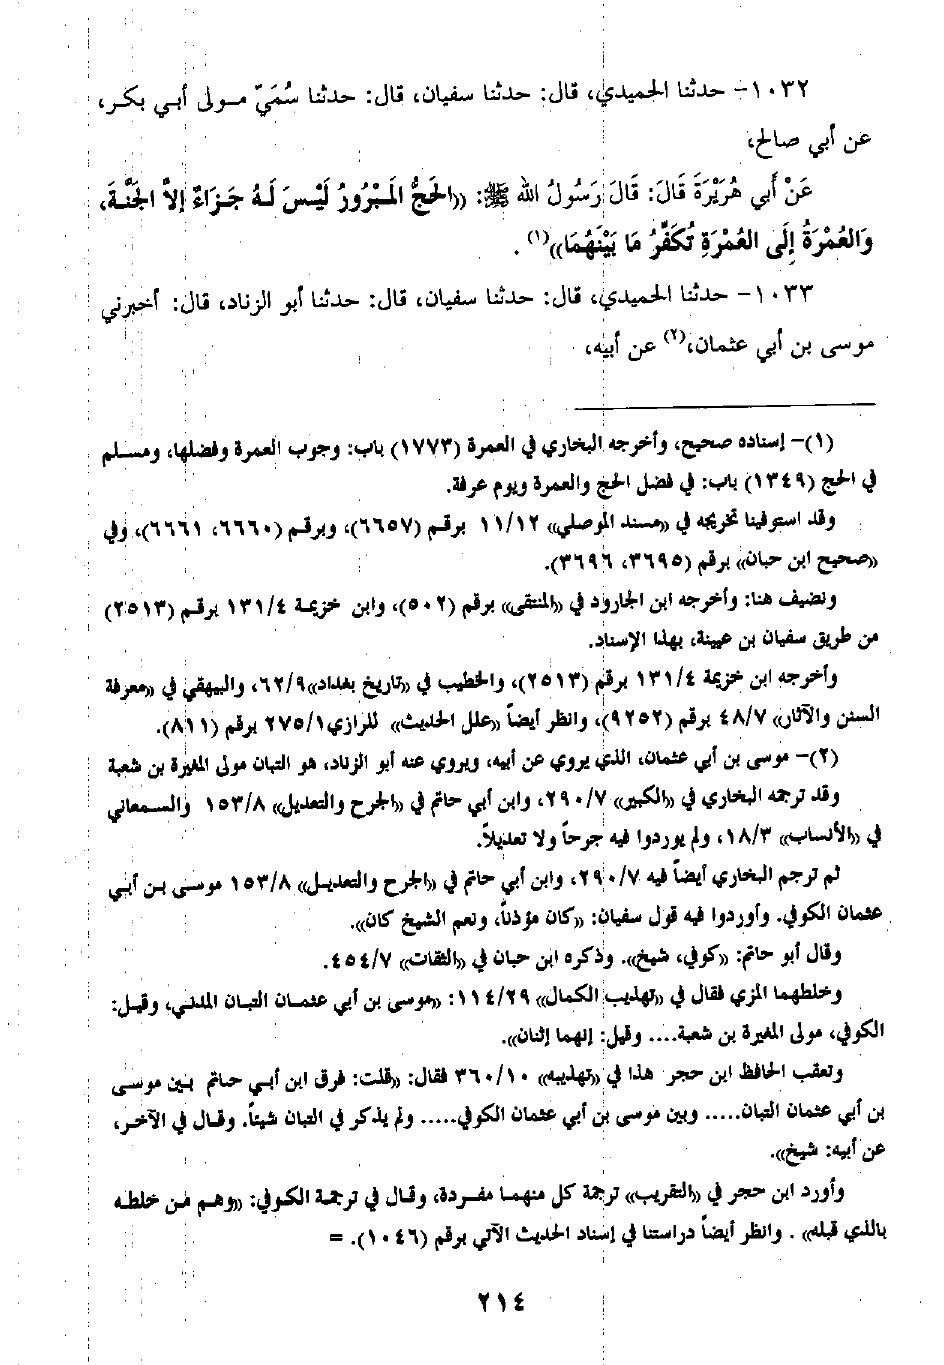 ١٠٣٢- حدثنا الحميدي، قال: حدثنا سفيان، قال: حدثنا سُمَيّ مولى أبي بكر،
عن أبي صالح،
عَنْ أَبي هُرَيْرَةَ قَالَ: قَالَ رَسُولُ الله ﷺ: «الحَجُّ المَبْرُورُ لَيْسَ لَهُ جَزَاءٌ إلاَّ الجَنَّةَ،
وَالعُمْرَةُ إِلَى العُمْرَةِ تُكَفِّرُ مَا بَيْنَهُمَا»(١).
١٠٣٣- حدثنا الحميدي، قال: حدثنا سفيان، قال: حدثنا أبو الزناد، قال: أخبرني
موسى بن أبي عثمان،(٢) عن أبيه،
(١)- إسناده صحيح، وأخرجه البخاري في العمرة (١٧٧٣) باب: وجوب العمرة وفضلها، ومسلم
في الحج (١٣٤٩) باب: في فضل الحج والعمرة ويوم عرفة.
وقد استوفينا تخريجه في «مسند الموصلي» ١١/١٢ برقم (٦٦٥٧)، وبرقم (٦٦٦٠، ٦٦٦١)، وفي
«صحيح ابن حبان» برقم (٣٦٩٥، ٣٦٩٦).
ونضيف هنا: وأخرجه ابن الجارود في «المنتقى» برقم (٥٠٢)، وابن خزيمة ١٣١/٤ برقم (٢٥١٣)
من طريق سفيان بن عيينة، بهذا الإسناد.
وأخرجه ابن خزيمة ١٣١/٤ برقم (٢٥١٣)، والخطيب في «تاريخ بغداد» ٦٢/٩، والبيهقي في «معرفة
السنن والآثار» ٤٨/٧ برقم (٩٢٥٢)، وانظر أيضاً «علل الحديث» للرازي ٢٧٥/١ برقم (٨١١).
(٢)- موسى بن أبي عثمان، الذي يروي عن أبيه، ويروي عنه أبو الزناد، هو التبان مولى المغيرة بن شعبة
وقد ترجمه البخاري في «الكبير» ٢٩٠/٧، وابن أبي حاتم في «الجرح والتعديل» ١٥٣/٨ والسمعاني
في «الأنساب» ١٨/٣، ولم يوردوا فيه جرحاً ولا تعديلاً.
ثم ترجم البخاري أيضاً فيه ٢٩٠/٧، وابن أبي حاتم في «الجرح والتعديل» ١٥٣/٨ موسى بن أبي
عثمان الكوفي. وأوردوا فيه قول سفيان: «كان مؤذناً، ونعم الشيخ كان».
وقال أبو حاتم: «كوفي، شيخ». وذكره ابن حبان في «الثقات» ٤٥٤/٧.
وخلطهما المزي فقال في «تهذيب الكمال» ١١٤/٢٩: «موسى بن أبي عثمان التبان المدني، وقيل:
الكوفي، مولى المغيرة بن شعبة.... وقيل: إنهما إثنان».
وتعقب الحافظ ابن حجر هذا في «تهذيبه» ٣٦٠/١٠ فقال: «قلت: فرق ابن أبي حاتم بين موسى
بن أبي عثمان التبان..... وبين موسى بن أبي عثمان الكوفي..... ولم يذكر في التبان شيئاً. وقال في الآخر،
عن أبيه: شيخ».
وأورد ابن حجر في «التقريب» ترجمة كل منهما مفردة، وقال في ترجمة الكوفي: «وهم من خلطه
بالذي قبله». وانظر أيضاً دراستنا في إسناد الحديث الآتي برقم (١٠٤٦). =
٢١٤